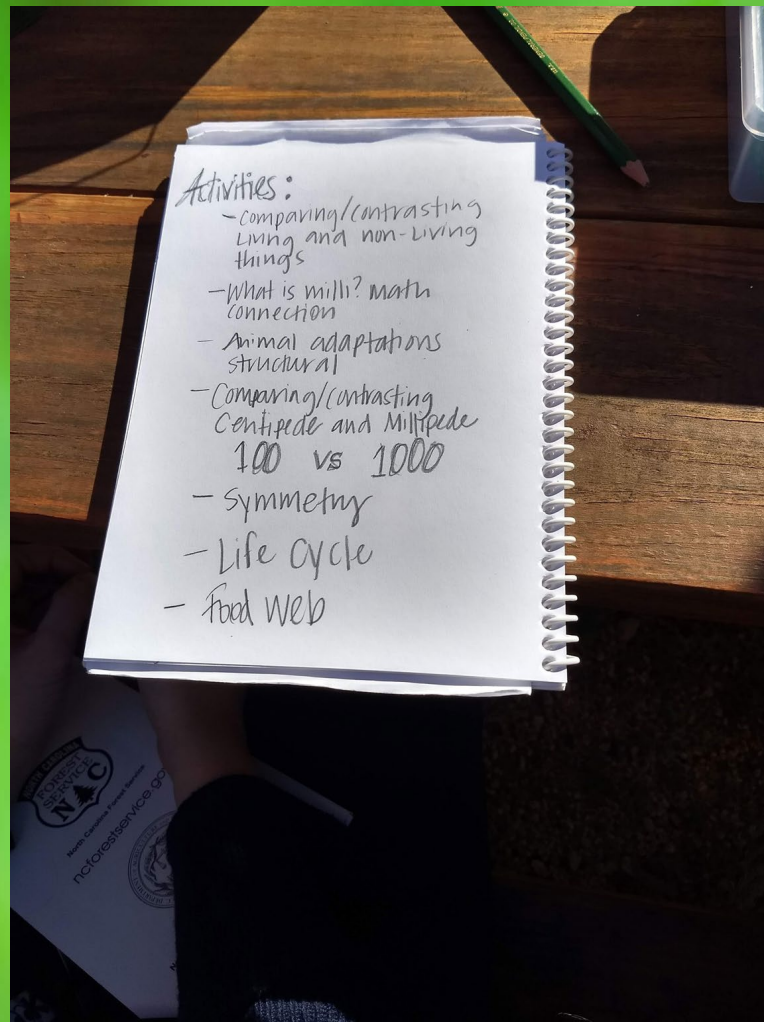 Activities:
- Comparing/contrasting
Living and non-Living
things
- What is milli? math
connection
- Animal adaptations
structural
- Comparing/contrasting
Centipede and Millipede
100 vs 1000
- Symmetry
- Life Cycle
- Food Web
NORTH CAROLINA
FOREST
SERVICE
N C
North Carolina Forest Service
ncforestservice.go